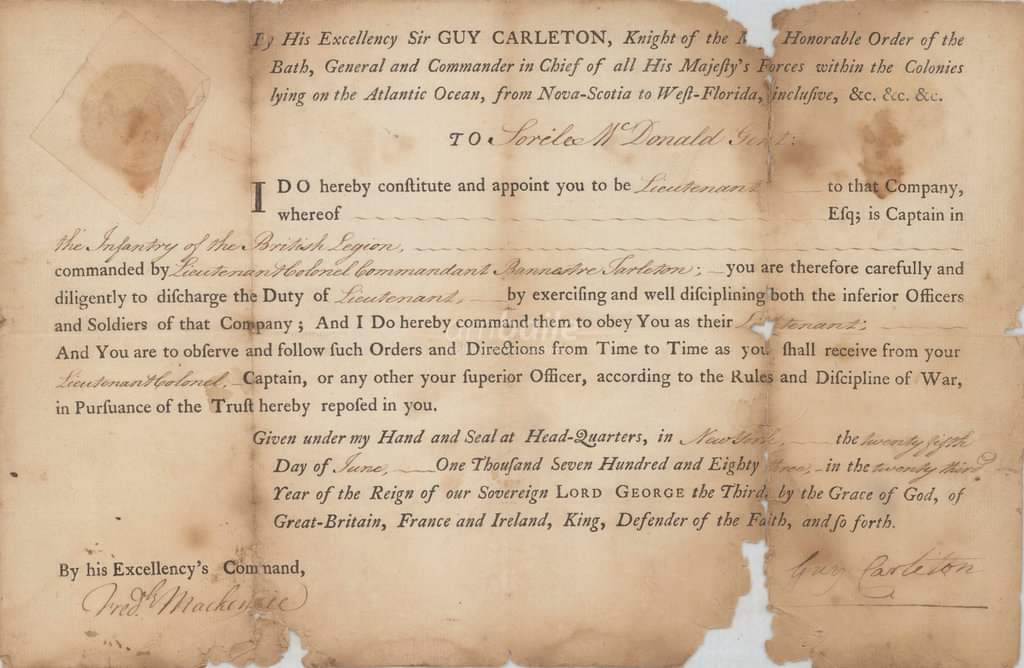 By His Excellency Sir GUY CARLETON, Knight of the Honorable Order of the
Bath, General and Commander in Chief of all His Majeſty's Forces within the Colonies
lying on the Atlantic Ocean, from Nova-Scotia to Weſt-Florida, incluſive, &c. &c. &c.
TO Sorile McDonald Gent:
I DO hereby conſtitute and appoint you to be Lieutenant to that Company,
whereof Eſq; is Captain in
the Infantry of the British Legion,
commanded by Lieutenant Colonel Commandant Bannastre Tarleton; you are therefore carefully and
diligently to diſcharge the Duty of Lieutenant, by exerciſing and well diſciplining both the inferior Officers
and Soldiers of that Company; And I Do hereby command them to obey You as their Lieutenant;
And You are to obſerve and follow ſuch Orders and Directions from Time to Time as you ſhall receive from your
Lieutenant Colonel, Captain, or any other your ſuperior Officer, according to the Rules and Diſcipline of War,
in Purſuance of the Truſt hereby repoſed in you.
Given under my Hand and Seal at Head-Quarters, in New York, the twenty fifth
Day of June, One Thouſand Seven Hundred and Eighty three, in the twenty third
Year of the Reign of our Sovereign LORD GEORGE the Third, by the Grace of God, of
Great-Britain, France and Ireland, King, Defender of the Faith, and ſo forth.
Guy Carleton
By his Excellency's Command,
Fredk Mackenzie